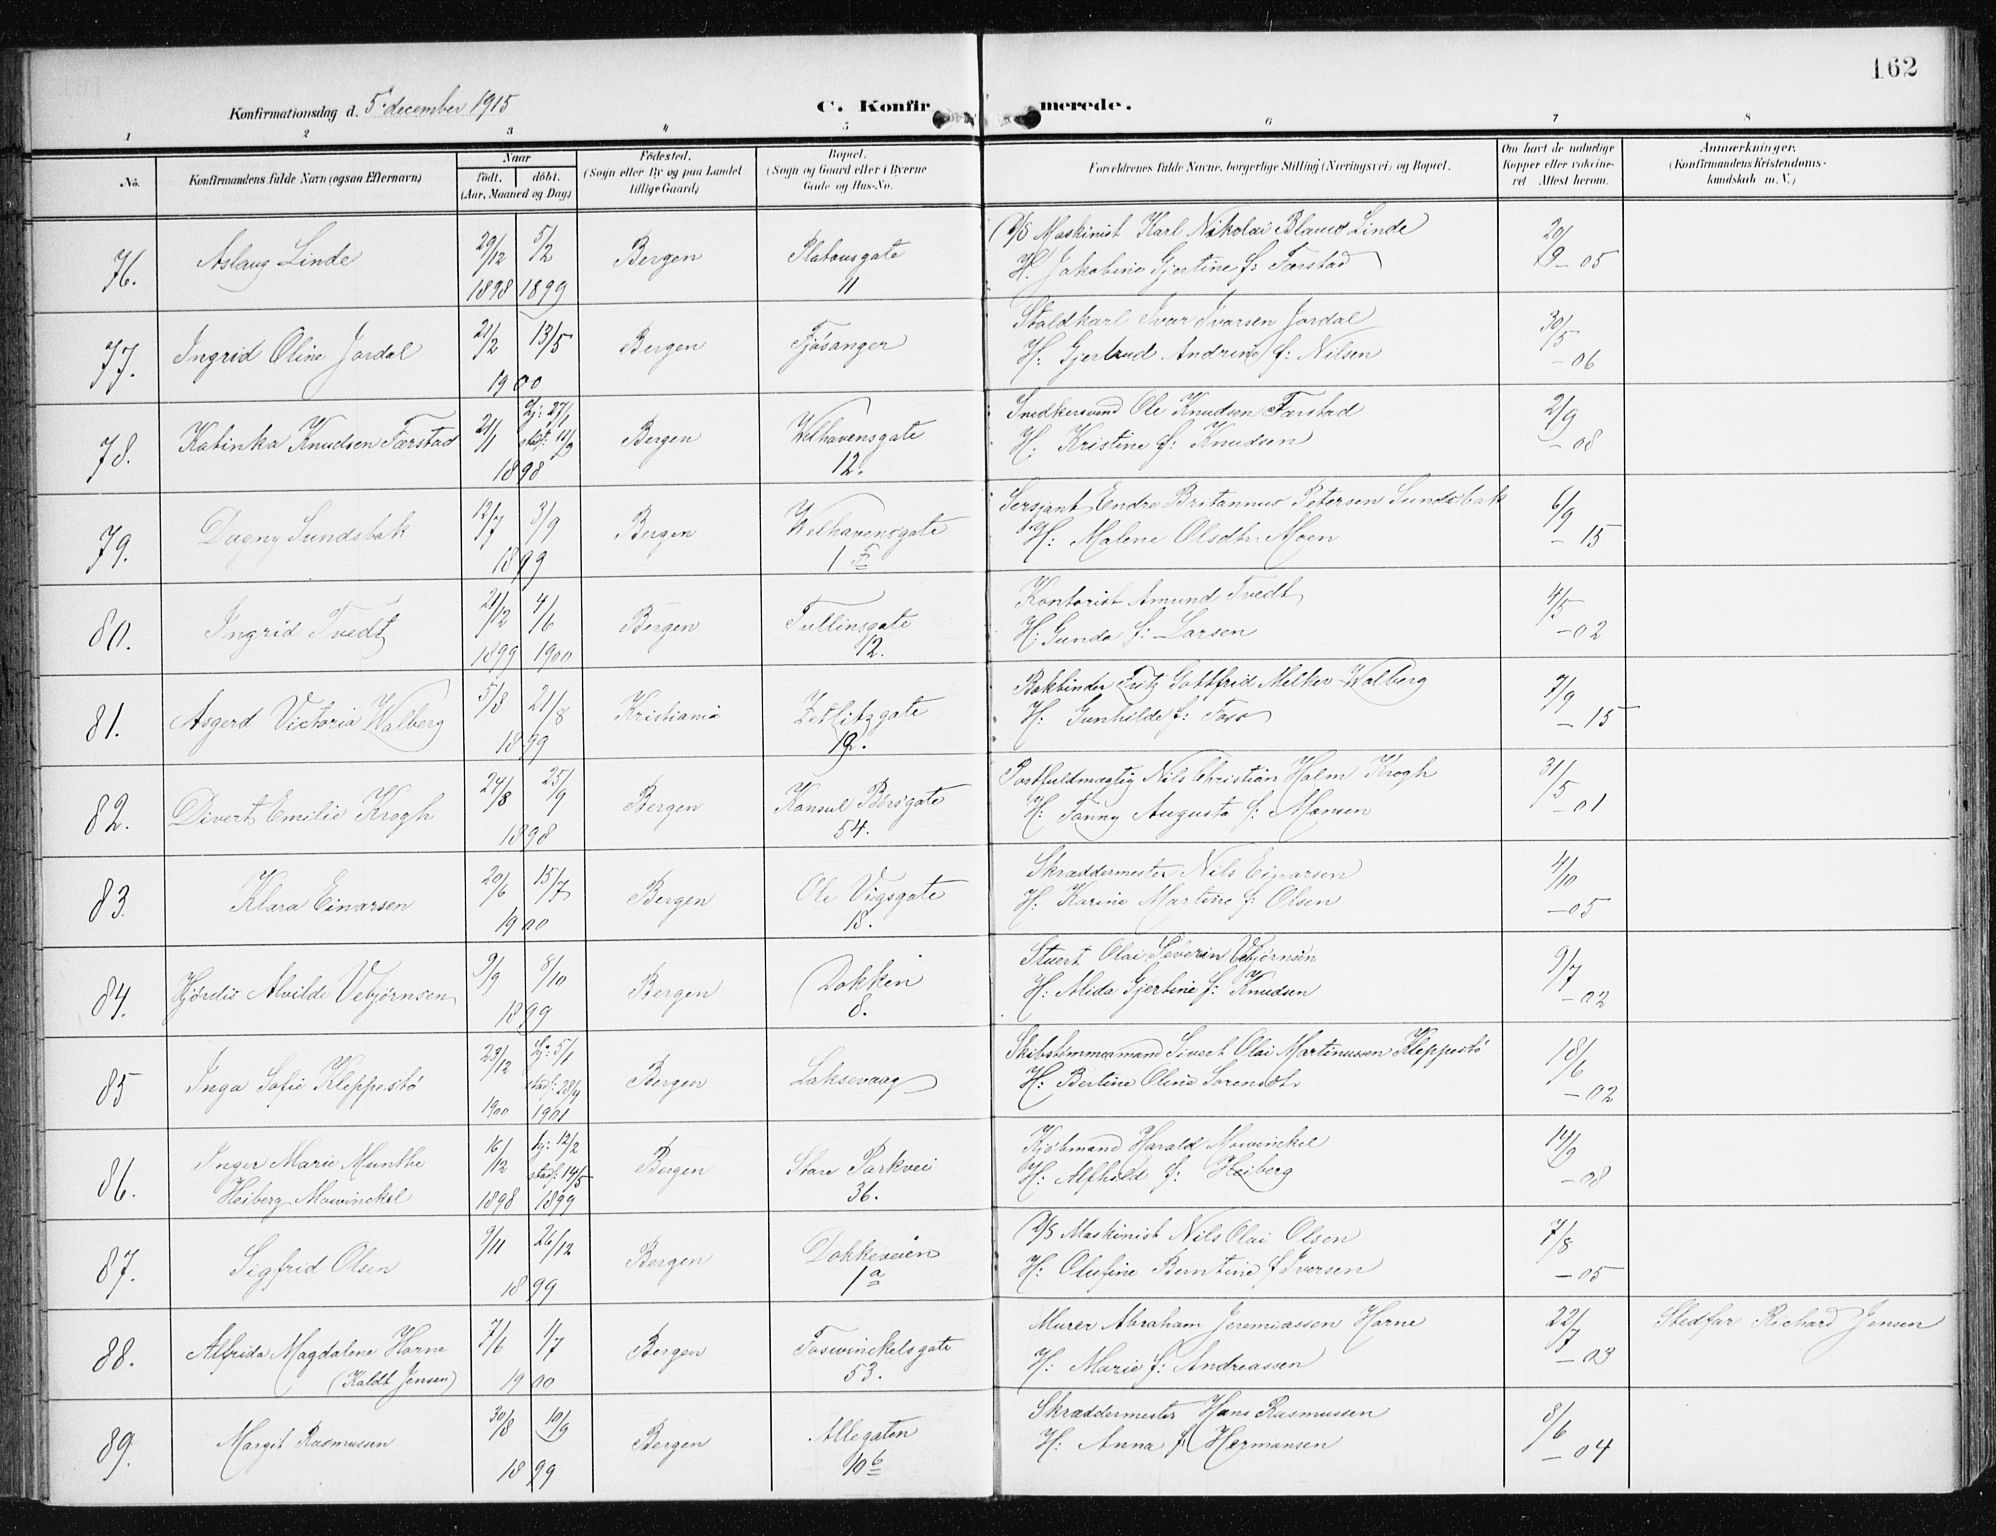 162
Konfirmationsdag d. 5' december 1915
C. Konfirmerede.
1 2 3 4 5 6 7 8
No. Konfirmandens fulde Navn (ogsaa Efternavn) Naar født. døbt. (Aar, Maaned og Dag) Fødested. (Sogn eller By og paa Landet tillige Gaard) Bopæl. (Sogn og Gaard eller i Byerne Gade og Hus-No. Forældrenes fulde Navne, borgerlige Stilling (Næringsvei) og Bopæl. Om havt de naturlige Kopper eller vaksineret Attest herom. Anmærkninger. (Konfirmandens Kristendomskundskab m. V.)
76. Aslaug Linde 29/12 1898 5/2 1899 Bergen Platousgate 11 D/S Maskinist Karl Nikolai Blauw Linde
H. Jakobine Gjertine f: Farstad 20/9 - 05
77. Ingrid Oline Jordal 21/2 13/5 1900 Bergen Fjøsanger Staldkarl Ivar Ivarsen Jordal
H: Gjertrud Andrine f: Nilsen 30/5 - 06
78. Katinka Knudsen Farstad 21/1 hj: 27/1 stadf. 11/9 1898 Bergen Welhavensgate 12. Snedkersvend Ole Knudsen Farstad
H. Kristine f: Knudsen 2/9 - 08
79. Dagny Sundsbak 12/7 3/9 1899 Bergen Welhavensgate Sersjant Endre Britannus Petersen Sundsbak
H: Malene Olsdtr. Moen 6/9 - 15
80. Ingrid Tvedt 21/12 1899 4/6 1900 Bergen Tullinsgate 12. Kontorist Amund Tvedt
H: Gunda f: Larsen 4/5 - 02
81. Asgerd Victoria Walberg 5/8 21/8 1899 Kristiania Zetlitzgate 19. Bokbinder Fritz Gottfrid Melker Walberg
H: Gunhilde f: Foss 7/9 - 15
82. Divert Emilie Krogh 24/8 25/9 1898 Bergen Konsul Børsgate 54. Postfuldmægtig Nils Christian Holm Krogh
H: Fanny Augusta f: Monsen 31/5 - 01
83. Klara Einarsen 20/6 15/7 1900 Bergen Ole Vigsgate 18. Skræddermester Nils Einarsen
H. Karine Martine f: Olsen 4/10 - 05
84. Hjørdis Alvilde Vebjørnsen 9/9 8/10 1899 Bergen Dokken 8. Stuert Olai Severin Vebjørnsen
H: Alida Gjertine f: Knudsen 9/7 - 02
85 Inga Sofie Kleppestø 23/12 1900 hj: 5/1 stadf: 28/4 1901 Bergen Laksevaag Skibstømmermand Sivert Olai Martinussen Kleppestø
H: Bertine Oline Sorensdtr 18/6 - 02
86. Inger Marie Munthe Heiberg Mowinckel 16/12 1898 hj: 12/2 stadf: 14/5 1899 Bergen Store Parkvei 36. Kjøbmand Harald Mowinckel
H: Alfhild f: Heiberg 14/9 - 08
87. Sigfrid Olsen 9/11 26/12 1899 Bergen Dokkeveien 1 a D/S Maskinist Nils Olai Olsen
H: Olufine Berntine f. Iversen 7/8 - 05
88. Alfrida Magdalene Horne (Kaldt Jensen) 7/6 1/7 1900 Bergen Foswinckelsgate 53. Murer Abraham Jeremiassen Horne
H: Marie f: Andreassen 22/7 - 03 Stedfar Richard Jensen
89. Margit Rasmussen 30/8 10/9 1899 Bergen Allegaten 10 b Skræddermester Hans Rasmussen
H: Anna f: Hermansen 8/6 - 04